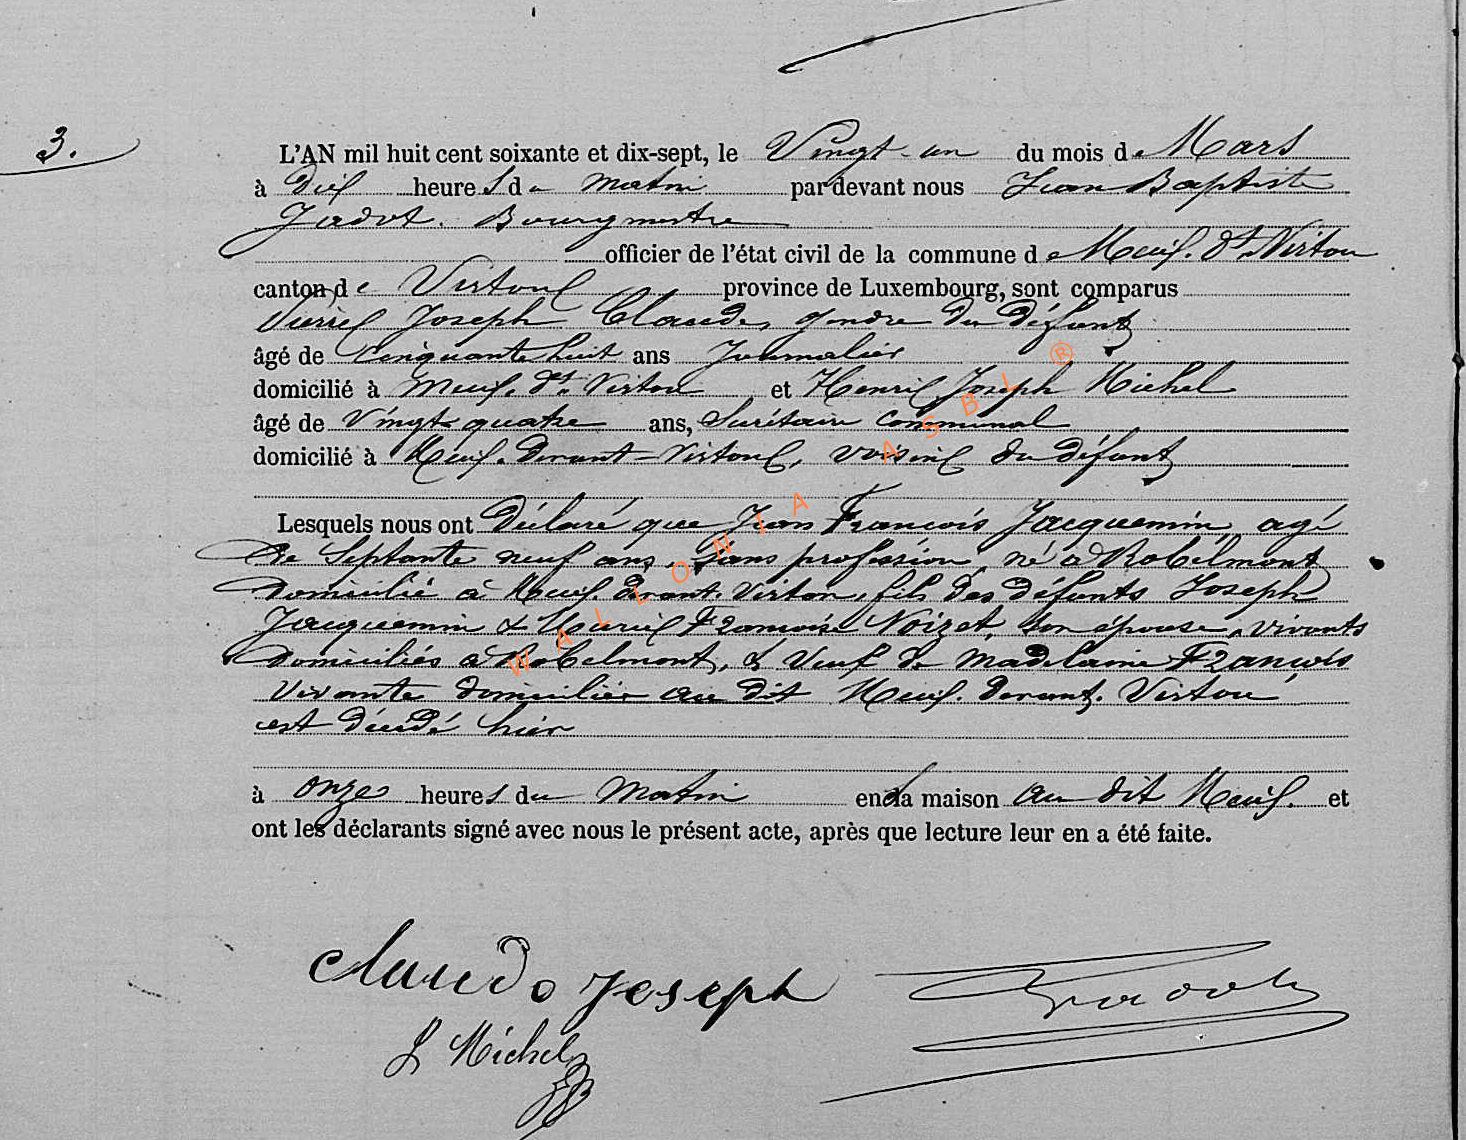 3.
L'AN mil huit cent soixante et dix-sept, le Vingt-un du mois de Mars
à Dix heures du matin par devant nous Jean Baptiste
Jadot. Bourgmestre
officier de l'état civil de la commune de Meix. dt. Virton
canton de Virton province de Luxembourg, sont comparus
Joseph Claude, gendre du défunt
âgé de cinquante huit ans Journalier
domicilié à Meix. dt. Virton et Henri Joseph Michel
âgé de Vingt quatre ans, Secrétaire communal
domicilié à Meix. devant-Virton, voisin du défunt
Lesquels nous ont Déclaré que Jean François Jacquemin, agé
de Septante neuf ans, sans profession, né à Robelmont
domicilié à Meix devant. Virton, fils des défunts Joseph
Jacquemin & Marie Françoise Noizet, son épouse, vivants
domiciliés à Robelmont, & Veuf de Madelaine François
vivante domiciliée au dit Meix. devant. Virton
est décédé hier
à onze heures du matin en la maison au dit Meix. et
ont les déclarants signé avec nous le présent acte, après que lecture leur en a été faite.
Claude Joseph
Jadot
J Michel
WALLONIA ASBL ®